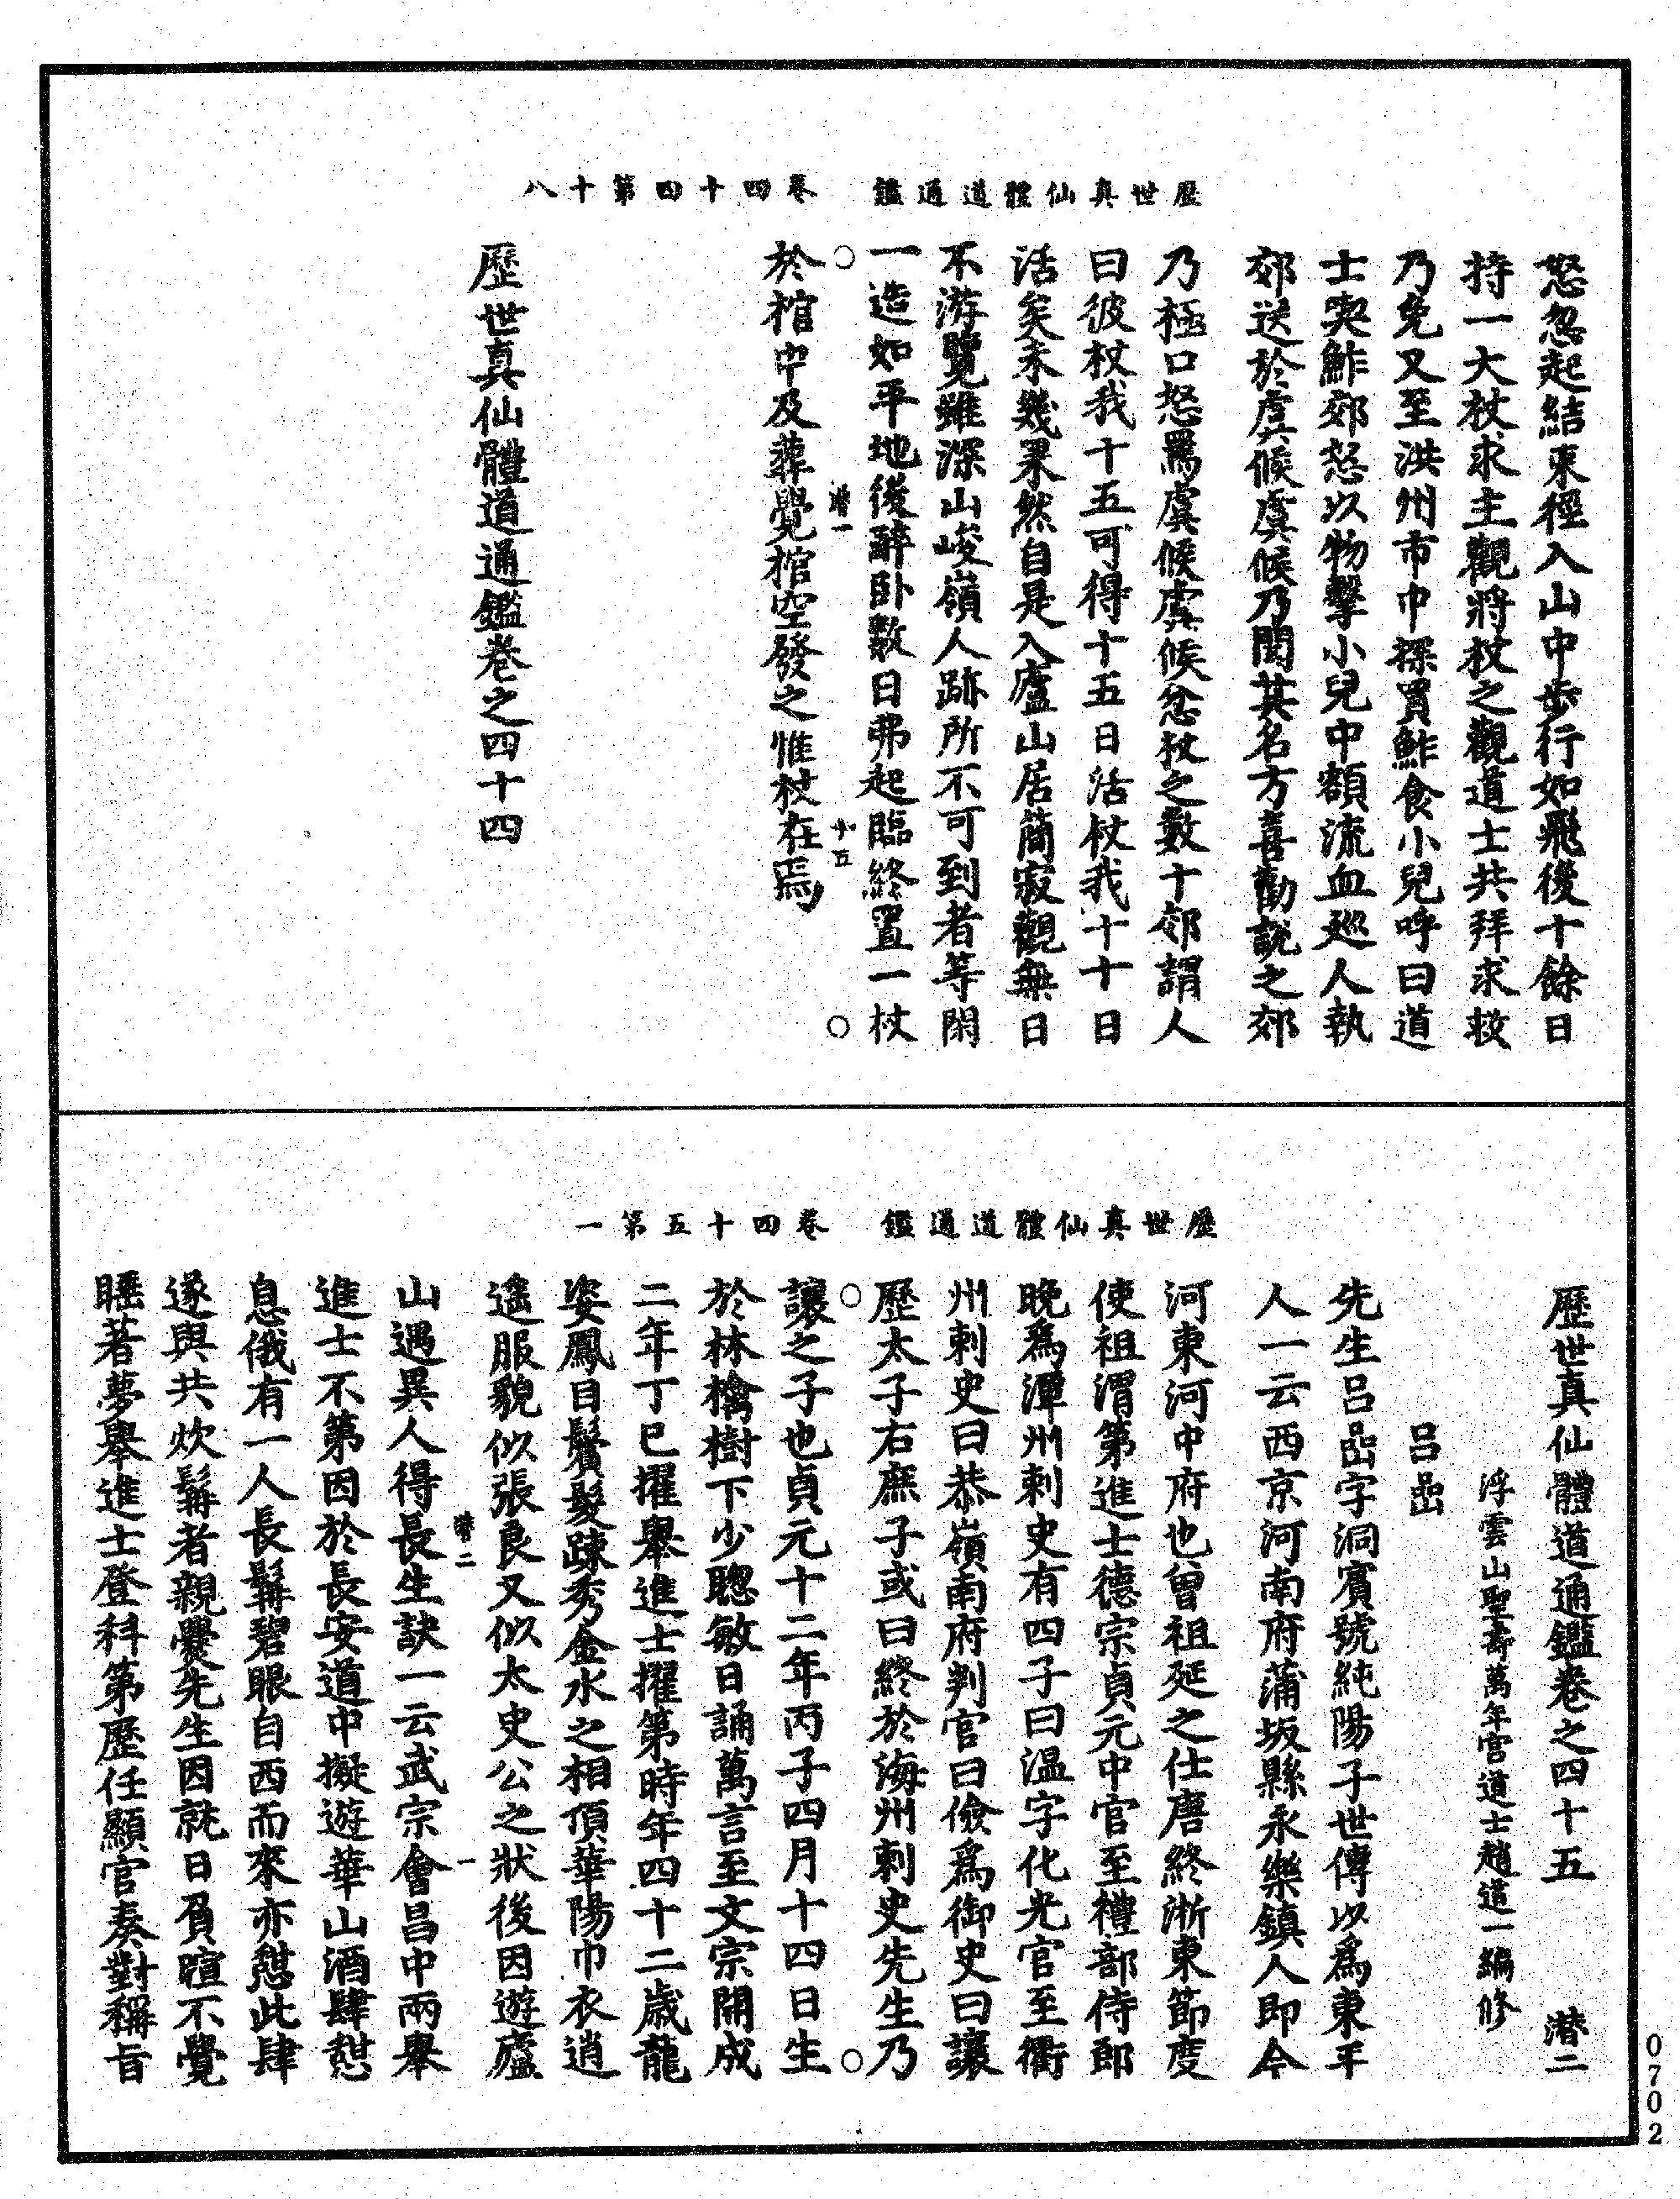 歷世真仙體道通鑑　卷四十四第十八
怒忽起結束徑入山中步行如飛後十餘日
持一大杖求主觀將杖之觀道士共拜求救
乃免又至洪州市中探買鮓食小兒呼曰道
士喫鮓郊怒以物擊小兒中額流血巡人執
郊送於虞候虞候乃聞其名方喜勸説之郊
乃極口怒罵虞候虞候忿杖之數十郊謂人
曰彼杖我十五可得十五日活杖我十十日
活矣未幾果然自是入廬山居簡寂觀無日
不游覽雖深山峻嶺人跡所不可到者等閑
一造如平地後醉卧數日弗起臨終置一杖
潛一　十五
於棺中及葬覺棺空發之惟杖在焉
歷世真仙體道通鑑卷之四十四
歷世真仙體道通鑑　卷四十五第一
歷世真仙體道通鑑卷之四十五　潛二
浮雲山聖壽萬年宮道士趙道一編修
呂喦
先生呂喦字洞賓號純陽子世傳以爲東平
人一云西京河南府蒲坂縣永樂鎮人即今
河東河中府也曾祖延之仕唐終浙東節度
使祖渭第進士德宗貞元中官至禮部侍郎
晚爲潭州刺史有四子曰溫字化光官至衢
州刺史曰恭嶺南府判官曰儉爲御史曰讓
歷太子右庶子或曰終於海州刺史先生乃
讓之子也貞元十二年丙子四月十四日生
於林檎樹下少聰敏日誦萬言至文宗開成
二年丁巳擢舉進士擢第時年四十二歲龍
姿鳳目鬢髮踈秀金水之相頂華陽巾衣逍
遙服貌似張良又似太史公之狀後因遊廬
潛二　一
山遇異人得長生訣一云武宗會昌中兩舉
進士不第因於長安道中擬遊華山酒肆憩
息俄有一人長髯碧眼自西而來亦憩此肆
遂與共炊髯者親爨先生因就日負暄不覺
睡著夢舉進士登科第歷任顯官奏對稱旨
0702